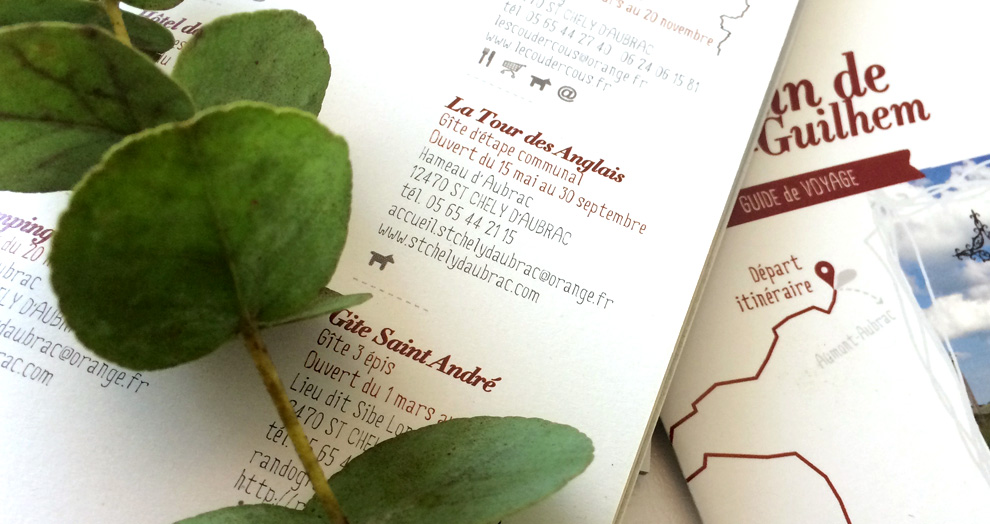 Hôtel de
mars au 20 novembre
ST CHELY D'AUBRAC
tél. 05 65 44 27 40 06 24 06 15 81
lescoudercous@orange.fr
www.lecoudercous.fr
@
La Tour des Anglais
Gîte d'étape communal
Ouvert du 15 mai au 30 septembre
Hameau d'Aubrac
12470 ST CHELY D'AUBRAC
tél. 05 65 44 21 15
accueil.stchelydaubrac@orange.fr
www.stchelydaubrac.com
Gîte Saint André
Gîte 3 épis
Ouvert du 1 mars
Lieu dit Sibe
12470 ST CHELY
tél. 05 65 4
http://
du 20
@orange.fr
.com
de
Guilhem
GUIDE de VOYAGE
Départ
itinéraire
Aumont-Aubrac